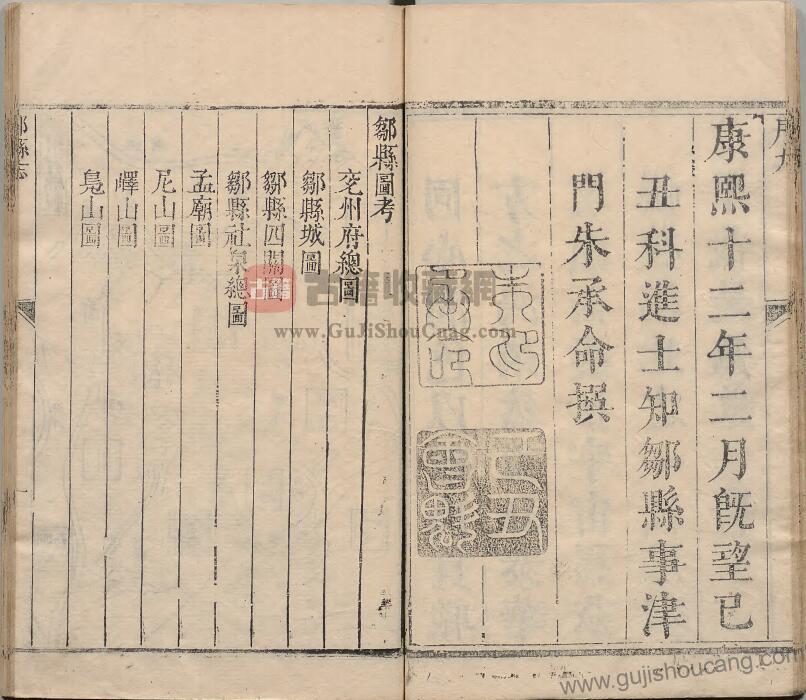 康熙十二年二月既望己
丑科進士知鄒縣事津
門朱承命撰
鄒縣圖考
兖州府總圖
鄒縣城圖
鄒縣四關圖
鄒縣社泉總圖
孟廟圖
尼山圖
嶧山圖
鳧山圖
鄒縣志
古籍
古籍收藏網
www.GuJiShouCang.com
www.gujishoucang.com